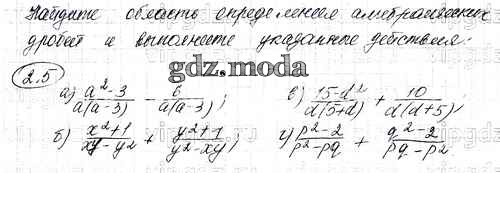 Найдите область определения алгебраических
дробей и выполните указанные действия.
gdz.moda
2.5
а) (a²-3)/(a(a-3)) - 6/(a(a-3)); в) (15-d²)/(d(5+d)) + 10/(d(d+5));
б) (x²+1)/(xy-y²) + (y²+1)/(y²-xy); г) (p²-2)/(p²-pq) + (q²-2)/(pq-p²)